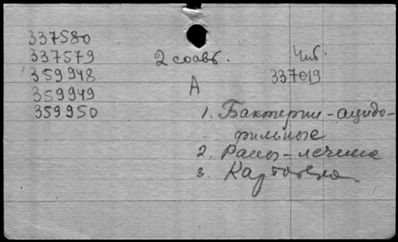 337580
337579
359948
359949
359950
2 соавт.
Чит.
337019
А
1. Бактерии - ацидо-
фильные
2. Раны - лечение
3.